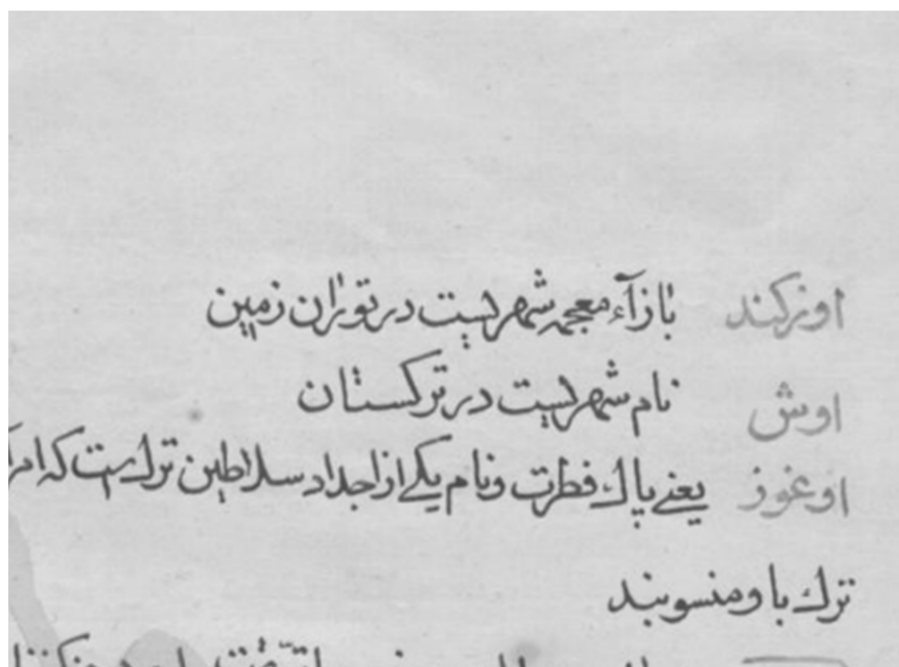 اوزکند بازآء معجمه شهریست در توران زمین
اوش نام شهریست در ترکستان
اوغوز یعنے پاک فطرت و نام یکے از اجداد سلاطین ترک است که
ترک با و منسوبند